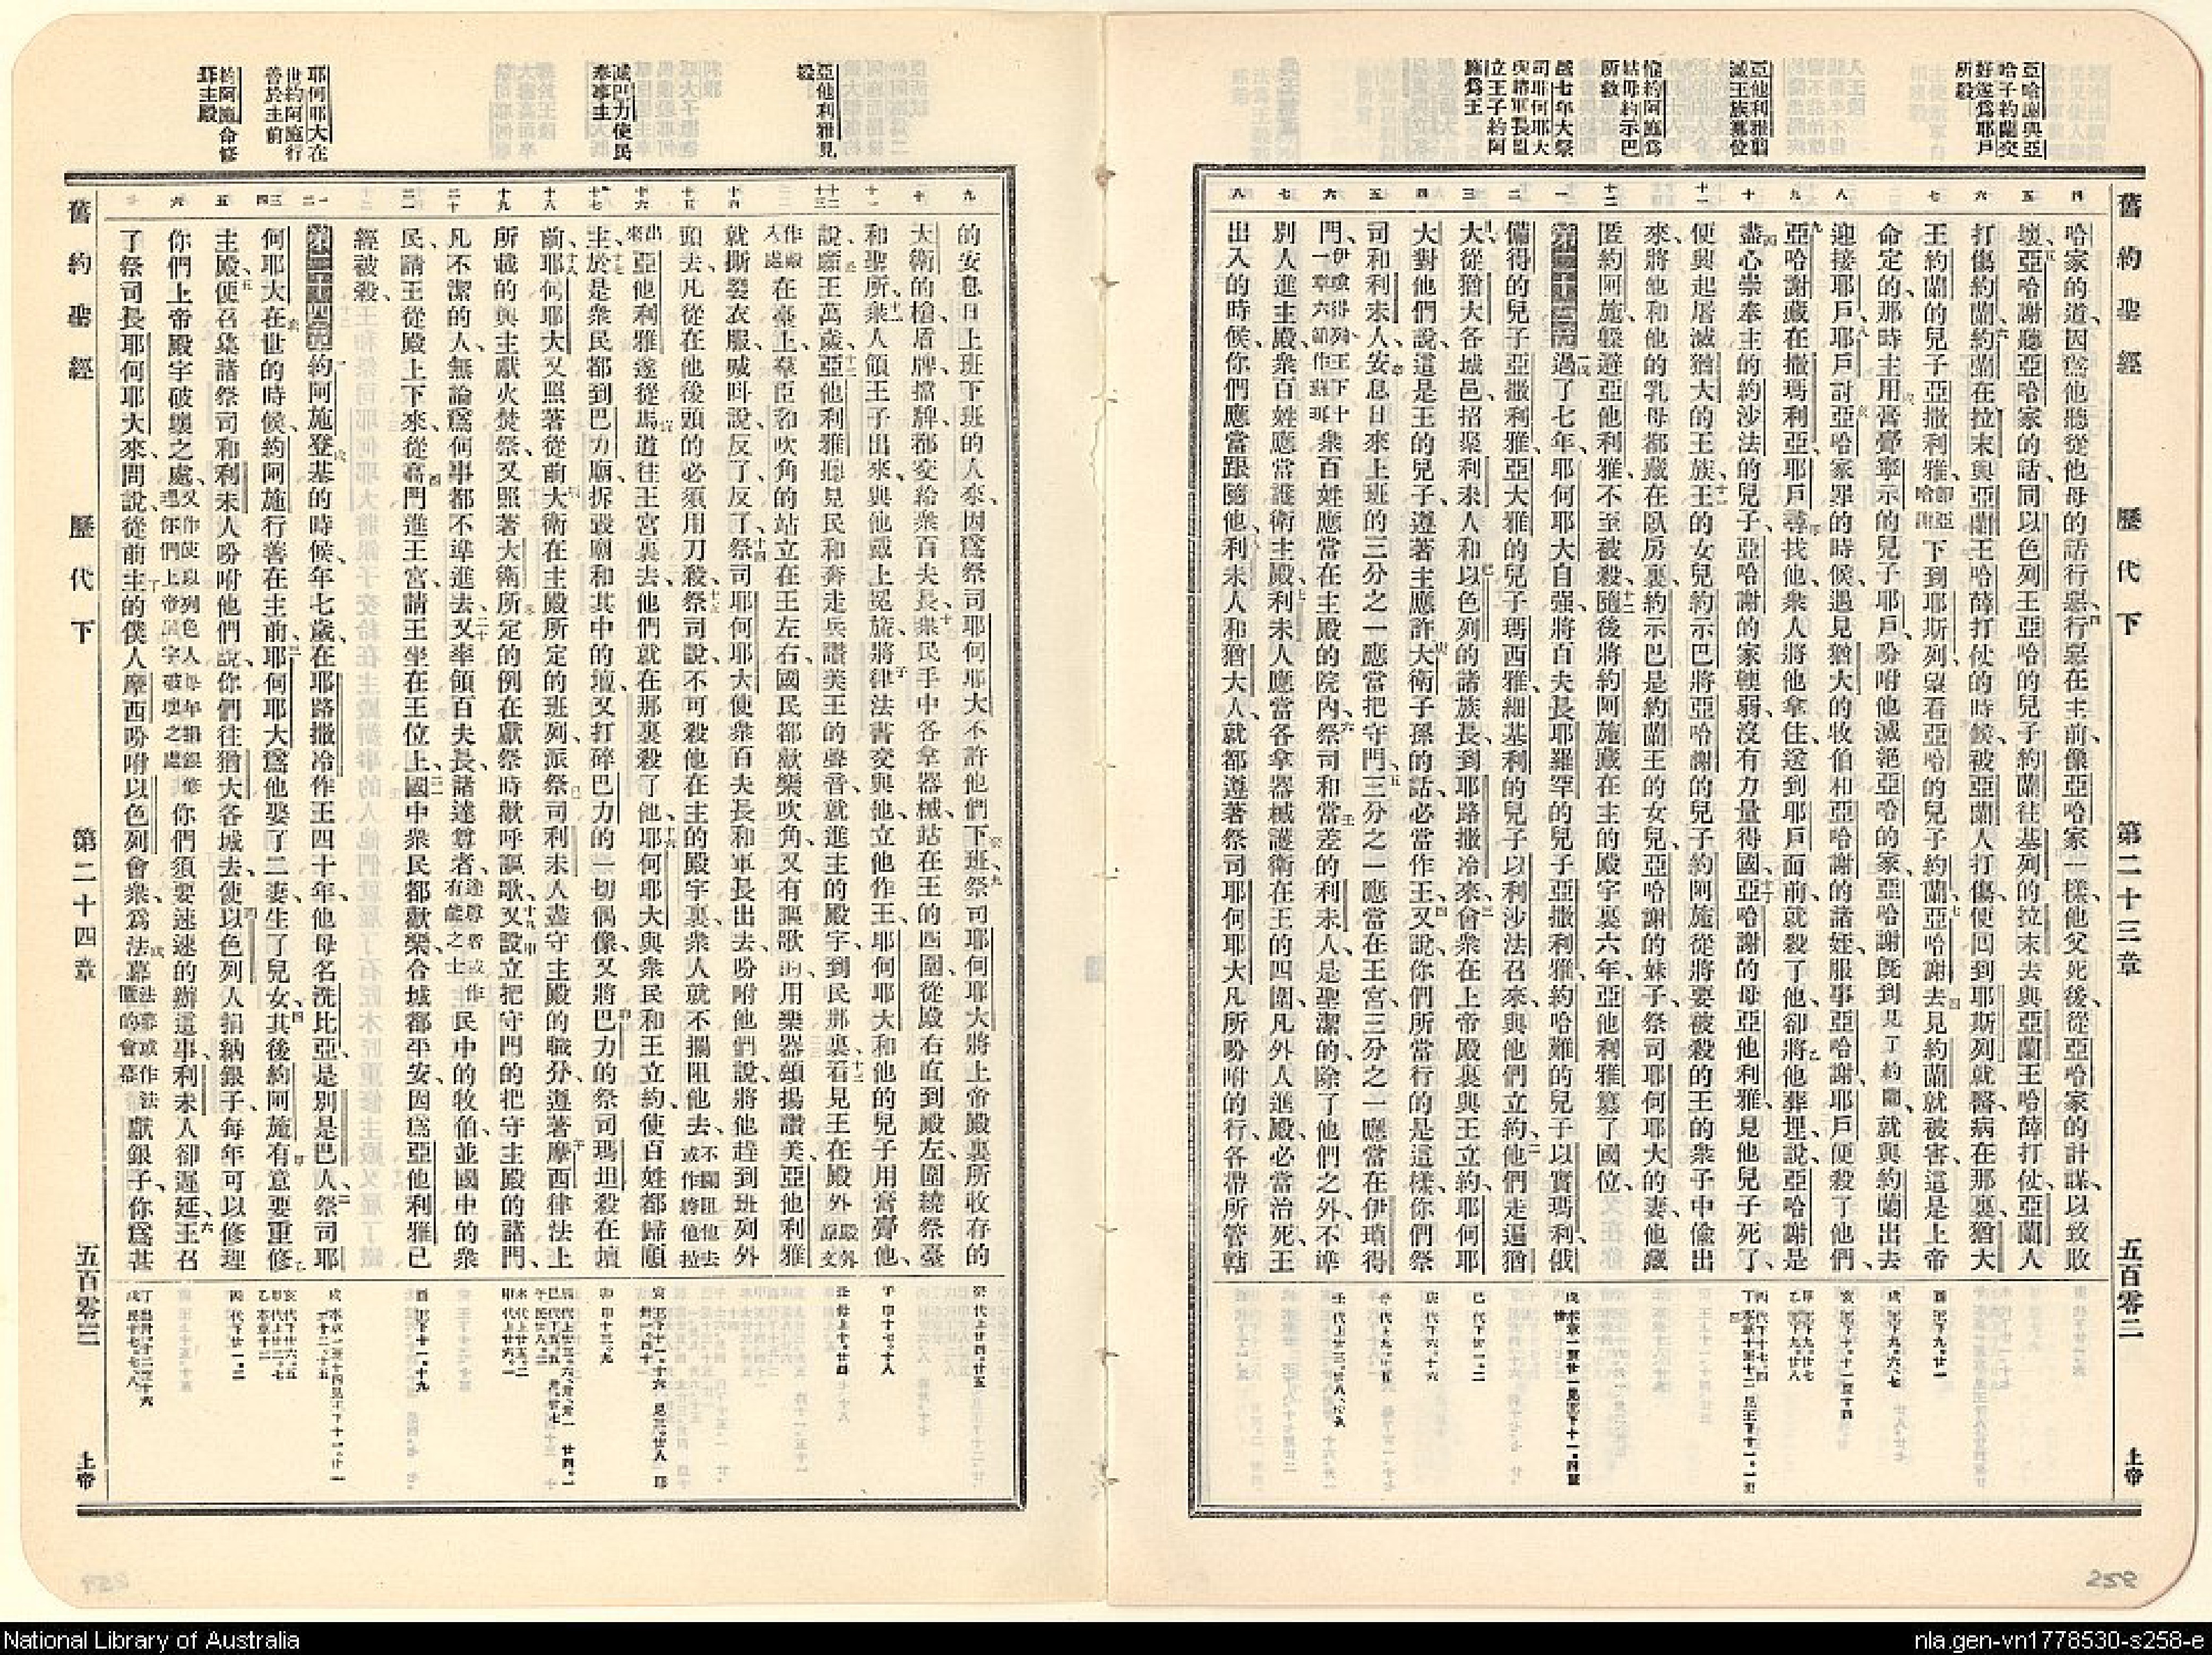 舊約聖經 歷代下 第二十三章 五百零二 上帝
亞哈謝與亞
哈子約蘭交
好遂為耶戶
所殺
亞他利雅翦
滅王族簒位
惟約阿施為
姑母約示巴
所救
越七年大祭
司耶何耶大
與諸軍長盟
立王子約阿
施為王
四 五 六 七 八 九 十 十一 十二 一 二 三 四 五 六 七 八
哈家的道、因為他聽從他母的話行惡、行惡在主前、像亞哈家一樣、他父死後、從亞哈家的計謀、以致敗
壞、亞哈謝聽亞哈家的話、同以色列王亞哈的兒子約蘭往基列的拉末去、與亞蘭王哈薛打仗、亞蘭人
打傷約蘭、約蘭在拉末與亞蘭王哈薛打仗的時候、被亞蘭人打傷、便回到耶斯列就醫病在那裏、猶大
王約蘭的兒子亞撒利雅、即亞哈謝下到耶斯列、看亞哈的兒子約蘭、亞哈謝去見約蘭就被害、這是上帝
命定的、那時主用膏膏寧示的兒子耶戶、吩咐他滅絕亞哈的家、亞哈謝旣到、見了約蘭、就與約蘭出去
迎接耶戶、耶戶討亞哈家罪的時候、遇見猶大的牧伯和亞哈謝的諸姪服事亞哈謝、耶戶便殺了他們、
亞哈謝藏在撒瑪利亞、耶戶尋找他、衆人將他拿住、送到耶戶面前、就殺了他、卻將他葬埋、說、亞哈謝是
盡心崇奉主的約沙法的兒子、亞哈謝的家輭弱、沒有力量得國、亞哈謝的母亞他利雅、見他兒子死了、
便興起屠滅猶大的王族、王的女兒約示巴、將亞哈謝的兒子約阿施、從將要被殺的王的衆子中偷出
來、將他和他的乳母都藏在臥房裏、約示巴是約蘭王的女兒、亞哈謝的妹子、祭司耶何耶大的妻、他藏
匿約阿施、躲避亞他利雅、不至被殺、隨後將約阿施藏在主的殿宇裏六年、亞他利雅簒了國位、
第二十三章過了七年、耶何耶大自強、將百夫長耶羅罕的兒子亞撒利雅、約哈難的兒子以實瑪利、俄
備得的兒子亞撒利雅、亞大雅的兒子瑪西雅、細基利的兒子以利沙法召來、與他們立約、他們走遍猶
大、從猶大各城邑、招聚利未人和以色列的諸族長、到耶路撒冷來、會衆在上帝殿裏與王立約、耶何耶
大對他們說、這是王的兒子、遵著主應許大衛子孫的話、必當作王、又說、你們所當行的是這樣、你們祭
司和利未人、安息日來上班的三分之一應當把守門、三分之一應當在王宮、三分之一應當在伊瑣得
門、伊瑣得列王下十一章六節作蘇珥衆百姓應當在主殿的院內、祭司和當差的利未人、是聖潔的、除了他們之外、不準
別人進主殿、衆百姓應當護衛主殿、利未人應當各拿器械護衛在王的四圍、凡外人進殿、必當治死、王
出入的時候、你們應當跟隨他、利未人和猶大人就都遵著祭司耶何耶大凡所吩咐的行、各帶所管轄
酉 王下九。廿一
戌 王下九。六、七
亥 王下十。十一至十四
甲 王下九。廿七
乙 王下九。廿八
丙 代下十七。四
己 代下廿一。二
庚 代下六。十六
258
舊約聖經 歷代下 第二十四章 五百零三 上帝
亞他利雅見
殺
滅巴力使民
奉事主
耶何耶大在
世約阿施行
善於主前
約阿施命修
葺主殿
九 十 十一 十二 十三 十四 十五 十六 十七 十八 十九 二十 二一 一 二 三 四 五 六
的安息日上班下班的人來、因為祭司耶何耶大不許他們下班、祭司耶何耶大將上帝殿裏所收存的
大衛的槍、盾牌、擋牌、都交給衆百夫長、衆民手中各拿器械、站在王的四圍、從殿右直到殿左、圍繞祭臺
和聖所、衆人領王子出來、與他戴上冕旒、將律法書交與他、立他作王、耶何耶大和他的兒子用膏膏他、
說、願王萬歲、亞他利雅聽見民和奔走兵讚美王的聲音、就進主的殿宇、到民那裏、看見王在殿外殿外原文
作殿入處在臺上、羣臣和吹角的站立在王左右、國民都歡樂吹角、又有謳歌的、用樂器頌揚讚美、亞他利雅
就撕裂衣服、喊叫說、反了、反了、祭司耶何耶大使衆百夫長和軍長出去、吩咐他們說、將他趕到班列外
頭去、凡從在他後頭的必須用刀殺、祭司說、不可殺他在主的殿宇裏、衆人就不攔阻他去、不攔阻他去或作將他拉
出來亞他利雅遂從馬道往王宮裏去、他們就在那裏殺了他、耶何耶大與衆民和王立約、使百姓都歸順
主、於是衆民都到巴力廟、拆毀廟和其中的壇、又打碎巴力的一切偶像、又將巴力的祭司瑪坦殺在壇
前、耶何耶大又照著從前大衛在主殿所定的班列、派祭司利未人盡守主殿的職分、遵著摩西律法上
所載的與主獻火焚祭、又照著大衛所定的例、在獻祭時歡呼謳歌、又設立把守門的把守主殿的諸門、
凡不潔的人、無論為何事、都不準進去、又率領百夫長、諸達尊者、達尊者或作有能之士民中的牧伯、並國中的衆
民、請王從殿上下來、從高門進王宮、請王坐在王位上、國中衆民都歡樂、合城都平安、因為亞他利雅已
經被殺、
第二十四章約阿施登基的時候、年七歲、在耶路撒冷作王四十年、他母名洗比亞、是別是巴人、祭司耶
何耶大在世的時候、約阿施行善在主前、耶何耶大為他娶了二妻、生了兒女、其後約阿施有意要重修
主殿、便召集諸祭司和利未人、吩咐他們說、你們往猶大各城去、使以色列人捐納銀子、每年可以修理
你們上帝殿宇破壞之處、又作使以色列人每年捐銀修理你們上帝殿宇破壞之處你們須要速速的辦這事、利未人卻遲延、王召
了祭司長耶何耶大來、問說、從前主的僕人摩西吩咐以色列會衆、為法幕法幕或作法匱的會幕獻銀子、你為甚
癸 代上廿四。廿五
子 申十七。十八
丑 撒母上十。廿四
卯 申十三。九
酉 王下十一。十九
丙 代下廿一。二
National Library of Australia
nla.gen-vn1778530-s258-e